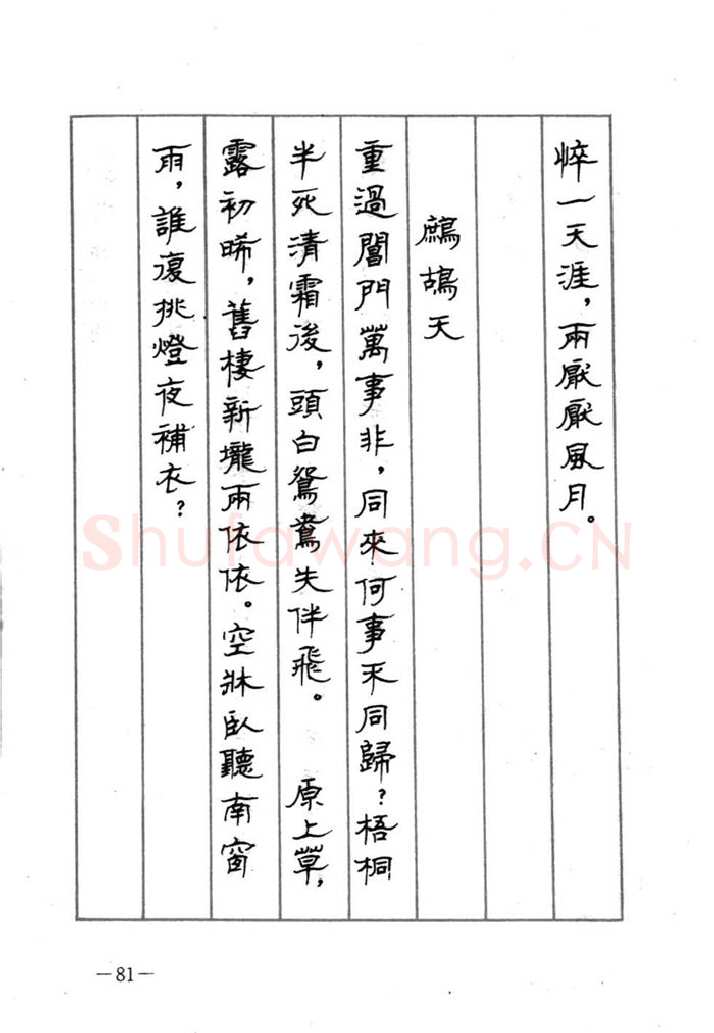 悴一天涯，兩厭厭風月。
鷓鴣天
重過閶門萬事非，同來何事不同歸？梧桐
半死清霜後，頭白鴛鴦失伴飛。 原上草，
露初晞，舊棲新壠兩依依。空牀臥聽南窗
雨，誰復挑燈夜補衣？
—81—
Shufawang.CN